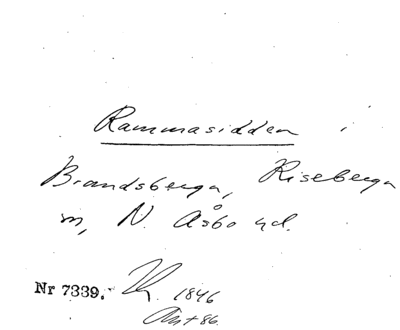 Rammasidden i
Brandsberga, Riseberga
m, N. Åsbo hd.
Nr 7339. 1846